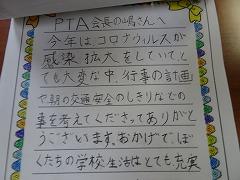 PTA会長の嶋さんへ
今年は、コロナウィルスが
感染拡大をしていて、と
ても大変な中、行事の計画
や朝の交通安全のしきりなどの
事を考えてくださってありがと
うございます。おかげで、ぼ
くたちの学校生活はとても充実